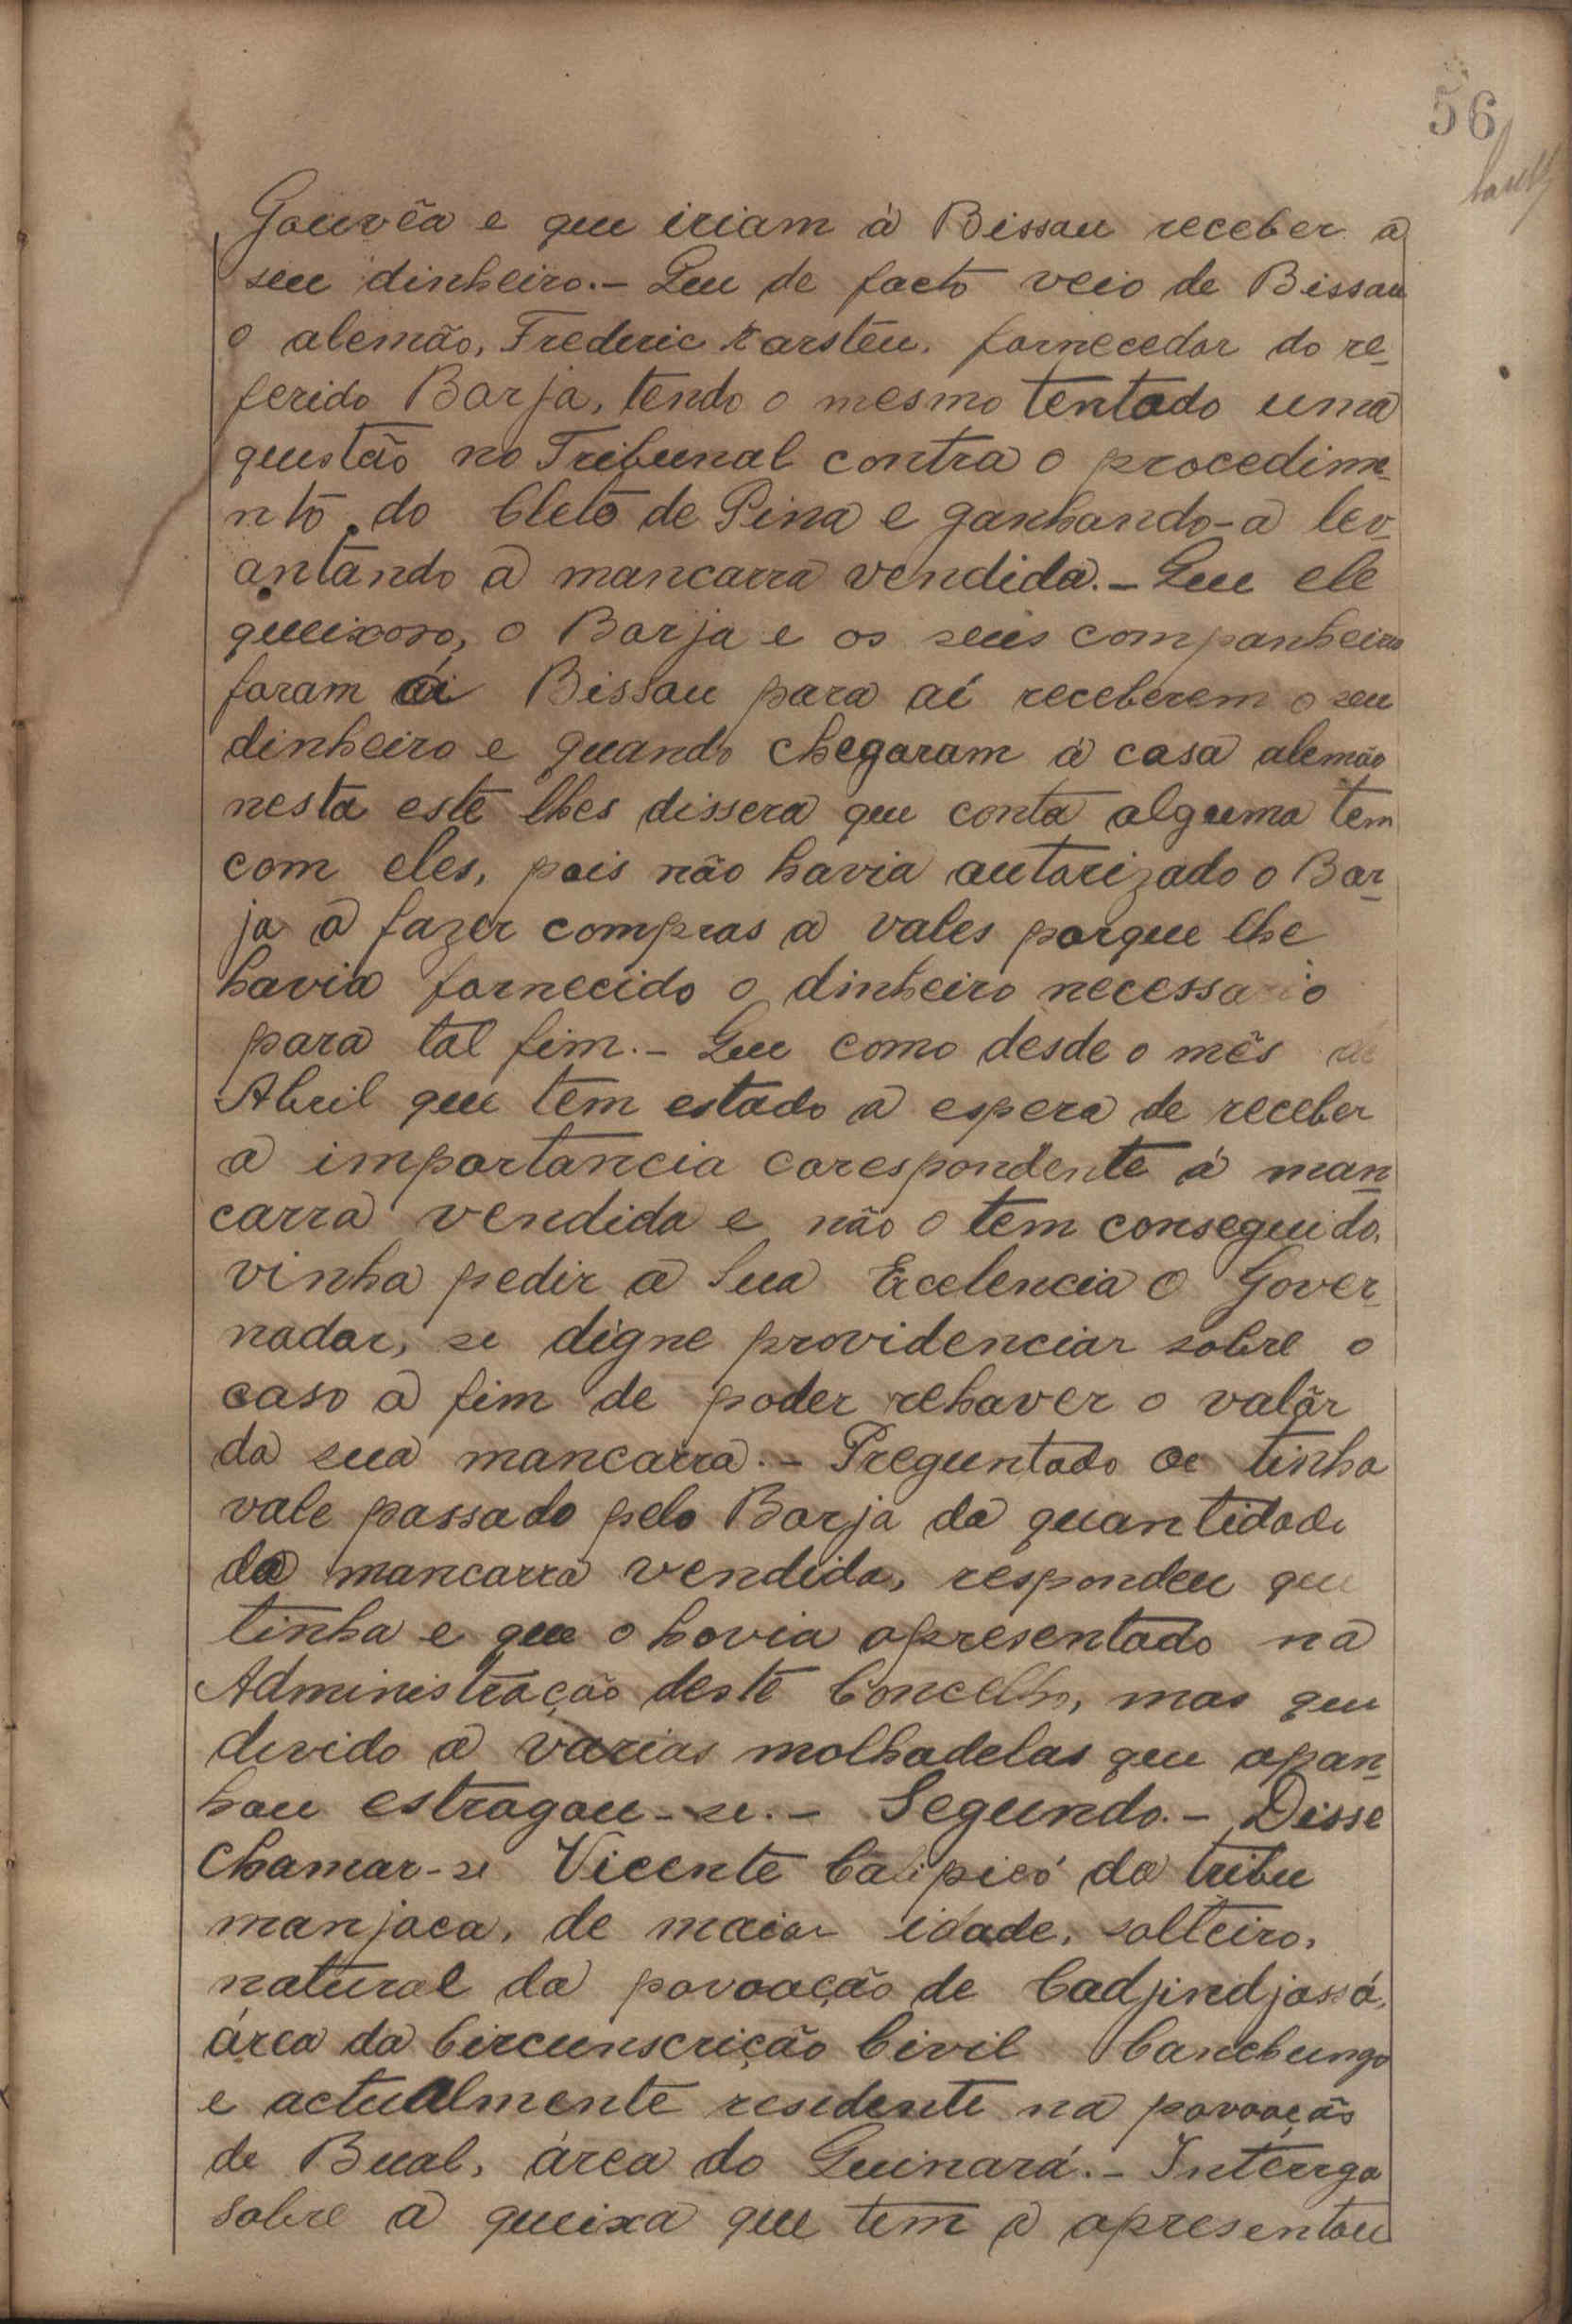 56
Gouvêa e que iriam á Bissau receber a
seu dinheiro.- Que de facto veio de Bissau
o alemão, Frederic Karsten. fornecedor do re-
ferido Barja, tendo o mesmo tentado uma
questão no Tribunal contra o procedime-
nto do Cleto de Pina e ganhando-a lev-
antando a mancarra vendida.- Que ele
queixoso, o Barja e os seus companheiros
foram á Bissau para aí receberem o seu
dinheiro e quando chegaram á casa alemão
nesta este lhes dissera que conta alguma tem
com eles, pois não havia autorizado o Bar-
ja a fazer compras a vales porque lhe
havia fornecido o dinheiro necessario
para tal fim.- Que como desde o mês de
Abril que tem estado a espera de receber
a importancia corespondente á man-
carra vendida e não o tem conseguido,
vinha pedir a Sua Excelencia o Gover-
nador, se digne providenciar sobre o
caso a fim de poder rehaver o valôr
da sua mancarra.- Preguntado se tinha
vale passado pelo Barja da quantidade
da mancarra vendida, respondeu que
tinha e que o havia apresentado na
Administração deste Concelho, mas que
devido a varias molhadelas que apan-
hou estragou-se.- Segundo.- Disse
chamar-se Vicente da tribu
manjaca, de maior idade, solteiro,
natural da povoação de Cadjindjassá,
área da Circunscrição Civil Canchungo
e actualmente residente na povoação
de Bual, área do Quinará.- Interrga
sobre a queixa que tem a apresentou